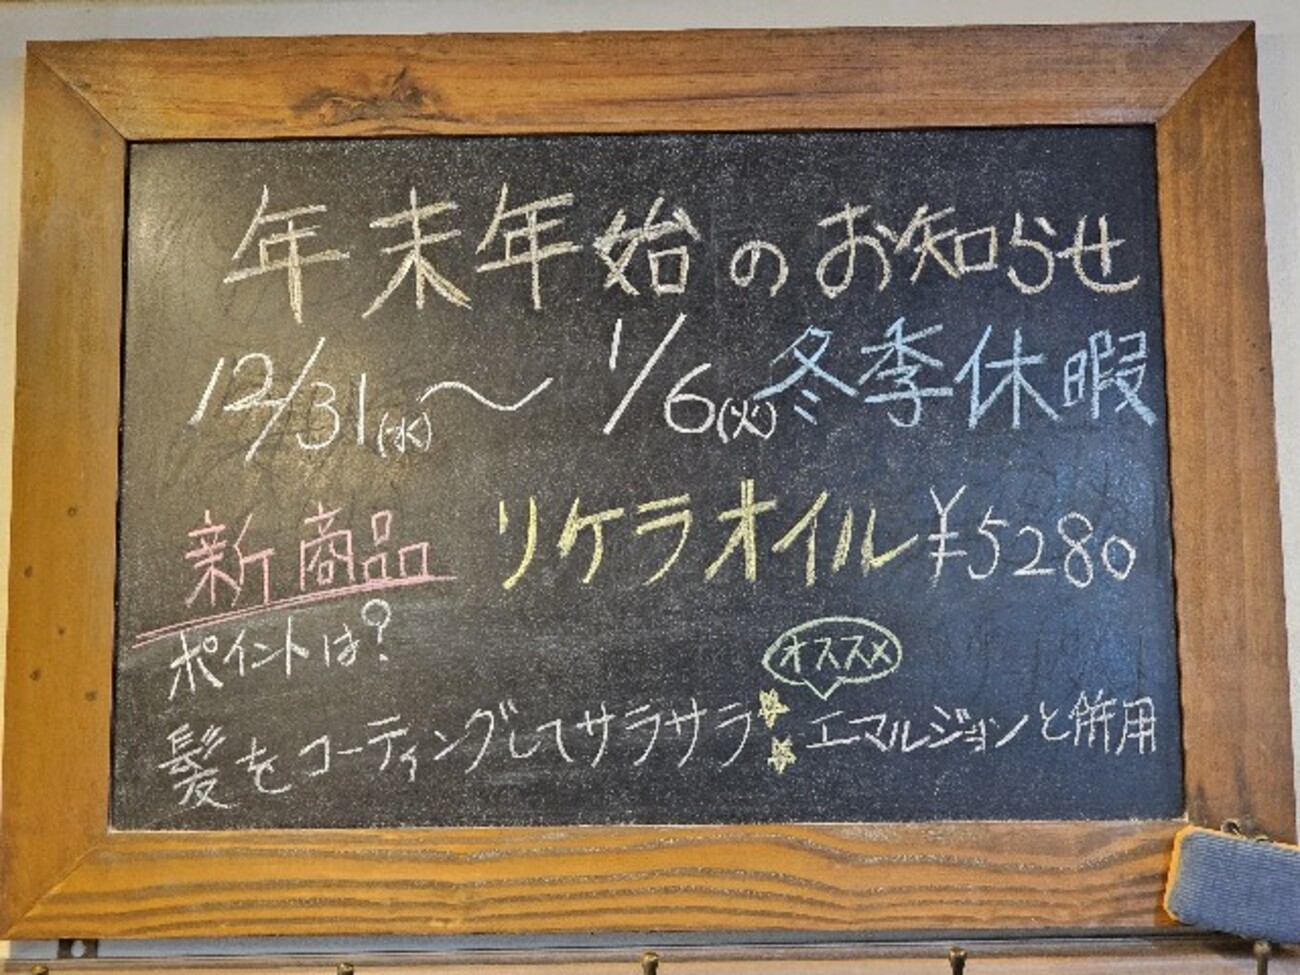 年末年始のお知らせ
12/31(水)〜1/6(火)冬季休暇
新商品 リケラオイル ¥5280
ポイントは?
オススメ
髪をコーティングしてサラサラ エマルジョンと併用